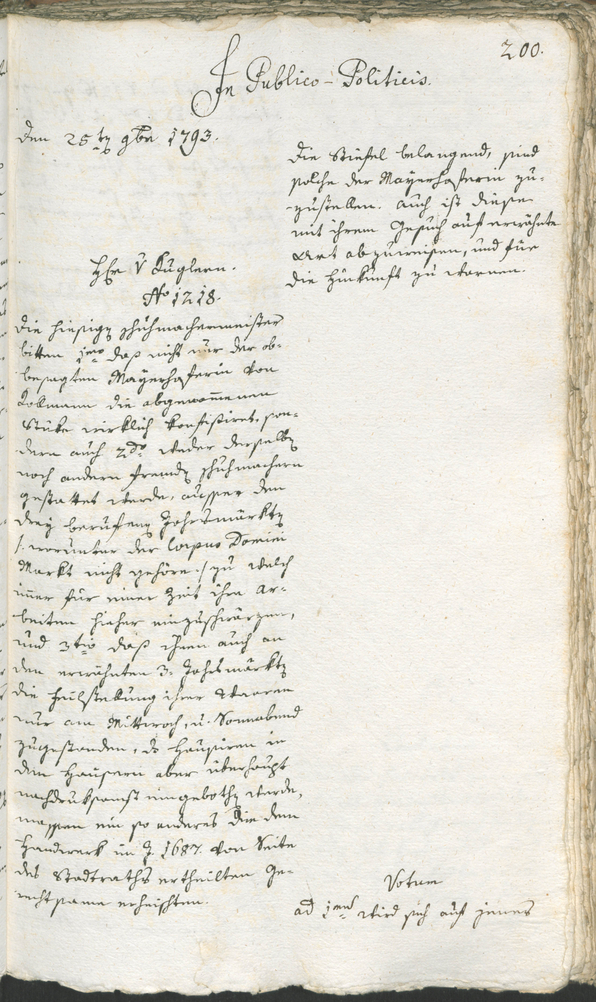 200.
In Publico-Politicis.
Den 25ten 9ber 1793.
Hr v Kuglern.
No 1218.
Die hiesigen Schuhmachermeister
bitten 1mo daß nicht nur der ob-
besagten Mayerhoferin von
Kollmann die abgenommenen
Stüke wirklich konfiszirt, son-
dern auch 2do weder derselben
noch andern fremden Schuhmachern
gestattet werde, ausser den
drey berufenen Jahrmärkten
/: worunter der Corpus Domini
Markt nicht gehöre :/ zu welch
immer für einer Zeit ihre Ar-
beiten hieher einzuschwärzen,
und 3tio daß ihnen auch an
den erwähnten 3. Jahrmärkten
die Feilbietung ihrer Waaren
nur am Mittwoch, u. Sonnabend
zugestanden, das Hausiren in
den Häusern aber überhaupt
nachdruksamst eingebothen werde,
massen ein so anderes die dem
Handwerk im J. 1687. von Seite
des Stadtraths ertheilten Ge-
rechtsame erheischten.
die Stiefel belangend, sind
solche der Mayerhoferin zu-
zustellen. Auch ist diese
mit ihrem Gesuch auf erwähnte
Art abzuweisen, und für
die Hinkunft zu warnen.
Votum
ad 1mum wird sich auf jenes